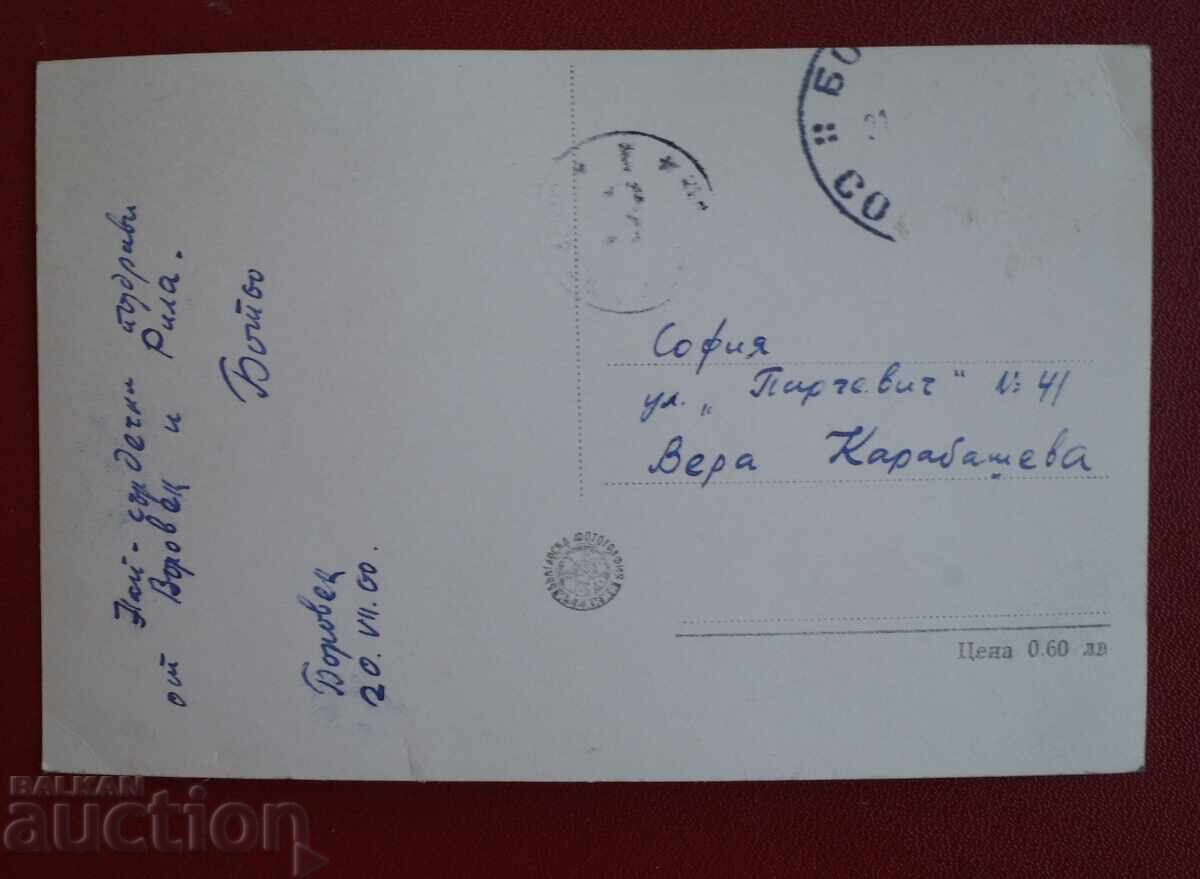 Най-сърдечни поздрави
от Боровец и Рила.
Ботьо
Боровец
20. VII. 60.
София
ул. „Пирчевич“ №: 41
Вера Карабашева
БЪЛГАРСКА ФОТОГРАФИЯ
Цена 0.60 лв
СО :: БО
BALKAN
auction